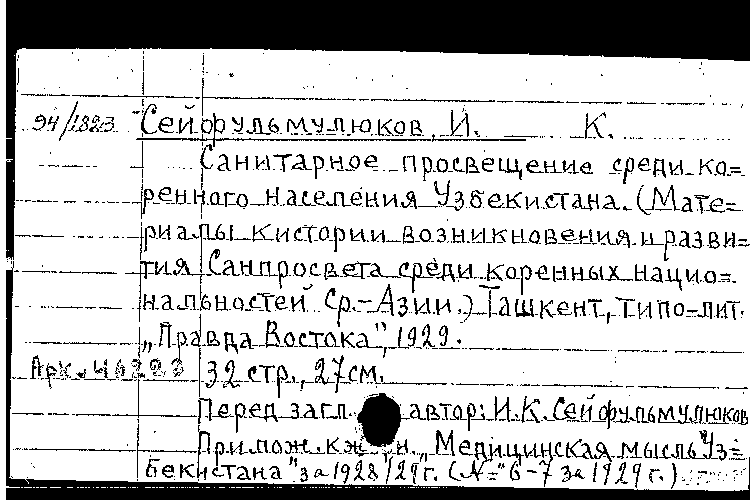 94/1823 Сейфульмулюков, И. К.
Санитарное просвещение среди ко=
ренного населения Узбекистана. (Мате=
риалы к истории возникновения и разви=
тия Санпросвета среди коренных нацио=
нальностей Ср.-Азии.) Ташкент, типо-лит.
„Правда Востока", 1929.
Арк. 32 стр., 27 см.
Перед загл. автор: И.К. Сейфульмулюков
Прилож. к ж н. „Медицинская мысль Уз=
бекистана" за 1928/29 г. (№ 6-7 за 1929 г.)